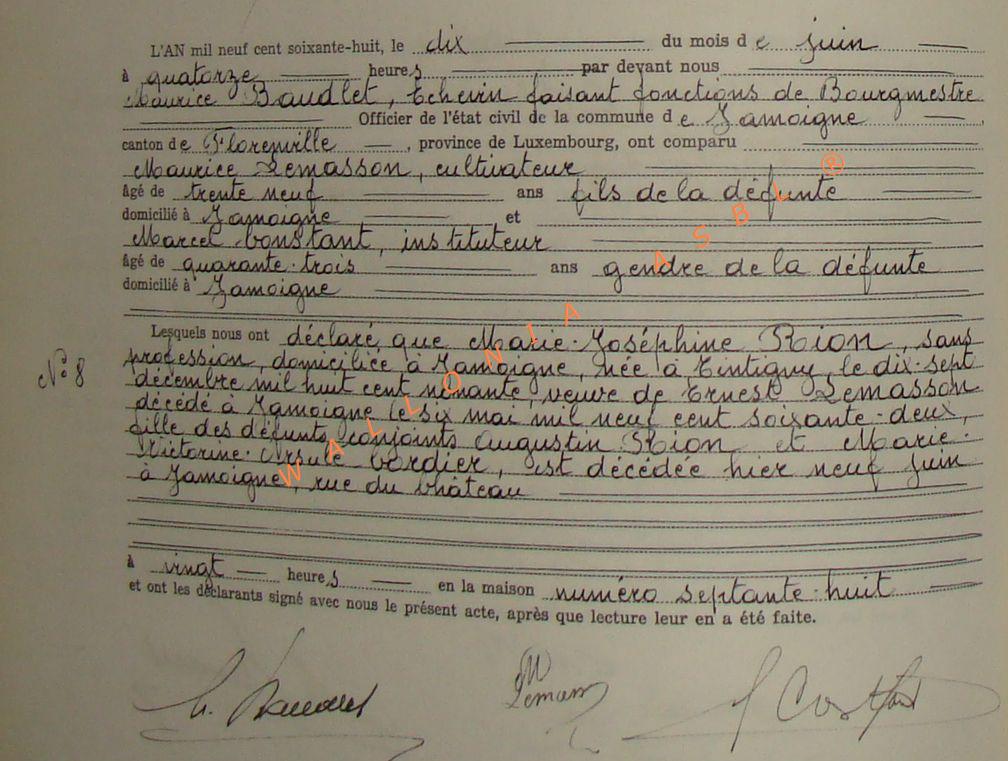 L'AN mil neuf cent soixante-huit, le dix du mois de juin
à quatorze heures par devant nous
Maurice Baudlet, Echevin faisant fonctions de Bourgmestre
Officier de l'état civil de la commune de Jamoigne,
canton de Florenville, province de Luxembourg, ont comparu
Maurice Lemasson, cultivateur
âgé de trente neuf ans fils de la défunte
domicilié à Jamoigne et
Marcel Constant, instituteur
âgé de quarante-trois ans gendre de la défunte
domicilié à Jamoigne
Lesquels nous ont déclaré que Marie-Joséphine Rion, sans
N° 8
profession, domiciliée à Jamoigne, née à Tintigny, le dix-sept
décembre mil huit cent nonante, veuve de Ernest Lemasson
décédé à Jamoigne le six mai mil neuf cent soixante-deux,
fille des défunts conjoints Augustin Rion et Marie-
Victorine-Ursule Cordier, est décédée hier neuf juin
à Jamoigne, rue du Château
à vingt heures en la maison numéro septante-huit
et ont les déclarants signé avec nous le présent acte, après que lecture leur en a été faite.
WALLONIA ASBL ®